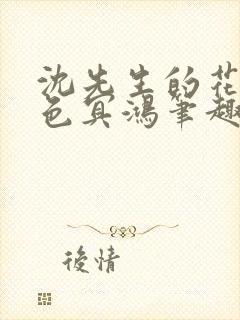 沈先生的花
色冥鴻筆趣
後情